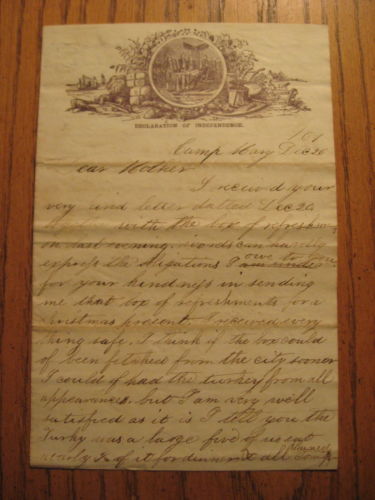 DECLARATION OF INDEPENDENCE.
61
Camp Dec 26
ear Mother
I received your
very kind letter dated Dec 20
with the box of refreshm
on last evening. words can hardly
express the obligations I owe to you
for your kindness in sending
me that box of refreshments for a
christmas present. I received every
thing safe. I think if the box could
of been fetched from the city sooner
I could of had the turkey from all
appearances. but I am very well
satisfied as it is I tell you the
Turky was a large five of us eat
nearly ½ of it for dinner & all